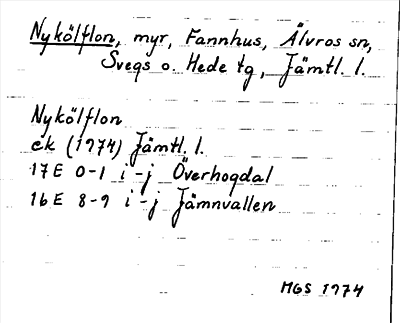 Nykölflon, myr, Fannhus, Älvros sn,
Svegs o. Hede tg, Jämtl. l.
Nykölflon
ek (1974) Jämtl. l.
17E 0-1 i-j Överhogdal
16E 8-9 i-j Jämnvallen
MGS 1974